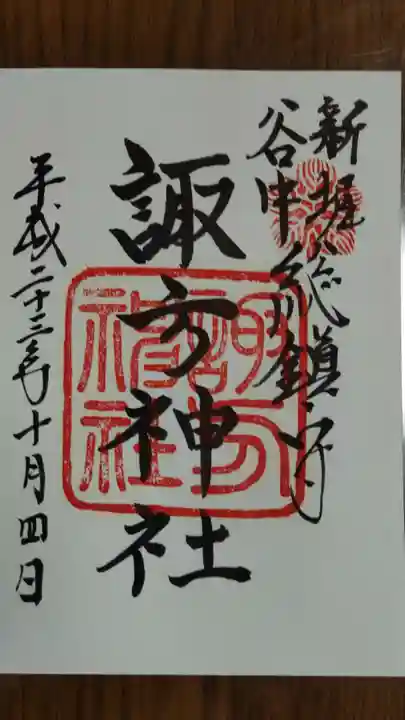 新堀
谷中
総鎮守
諏方神社
平成二十三年十月四日
諏方
神社